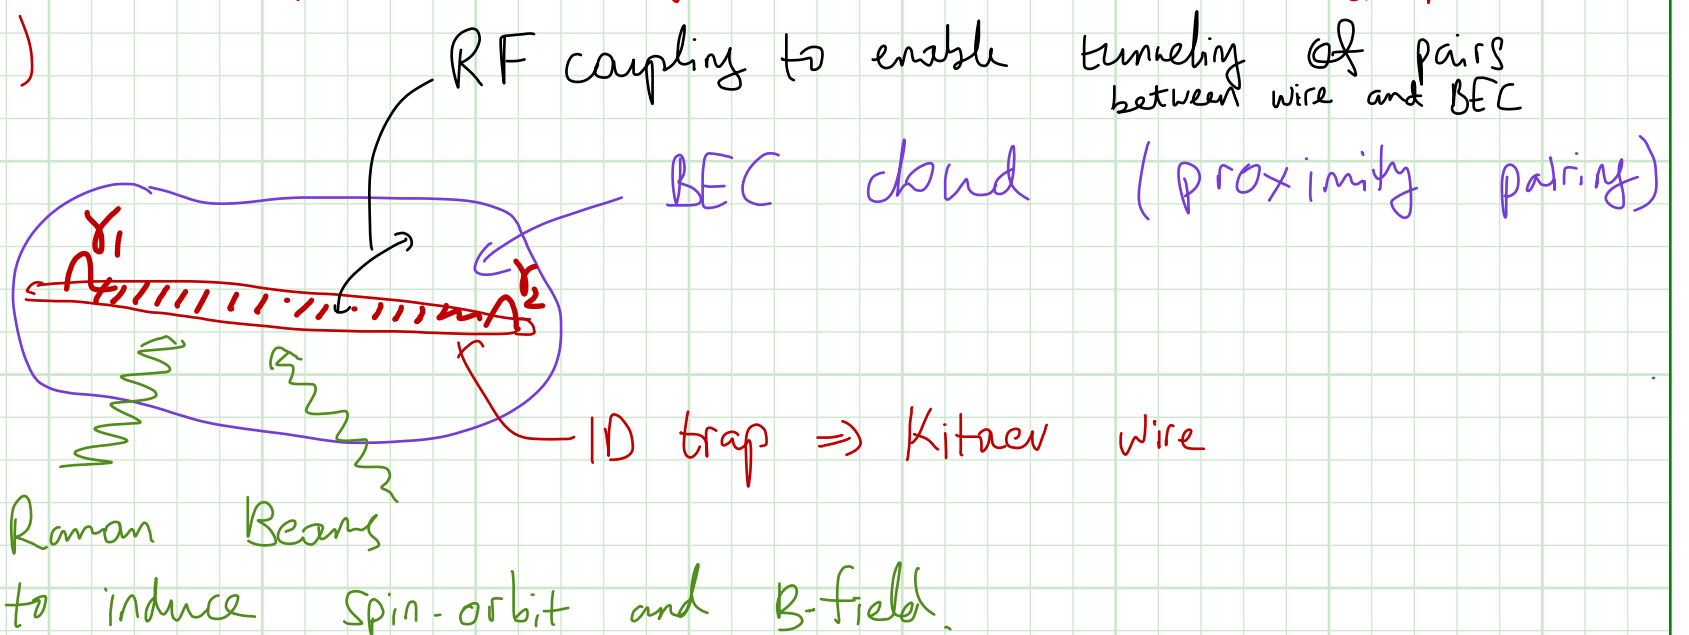 )
RF coupling to enable tunneling of pairs
between wire and BEC
BEC cloud (proximity pairing)
γ1
γ2
1D trap ⇒ Kitaev wire
Raman Beams
to induce spin-orbit and B-field.